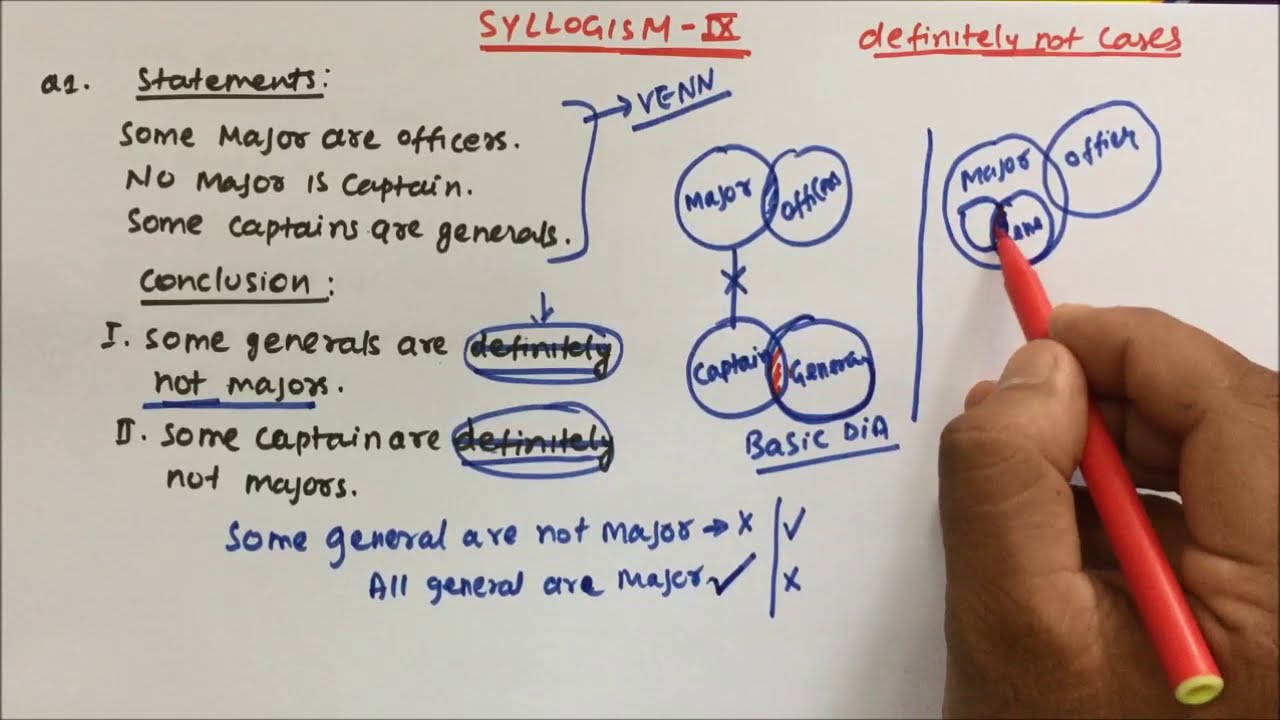 SYLLOGISM - IX
definitely not cases
Q1. Statements:
Some Major are officers.
No Major is Captain.
Some captains are generals.
→ VENN
Conclusion:
I. Some generals are definitely
not majors.
II. Some captain are definitely
not majors.
Major
Captain
General
Basic DIA
Major
Some general are not Major → x | ✓
All general are Major ✓ | x